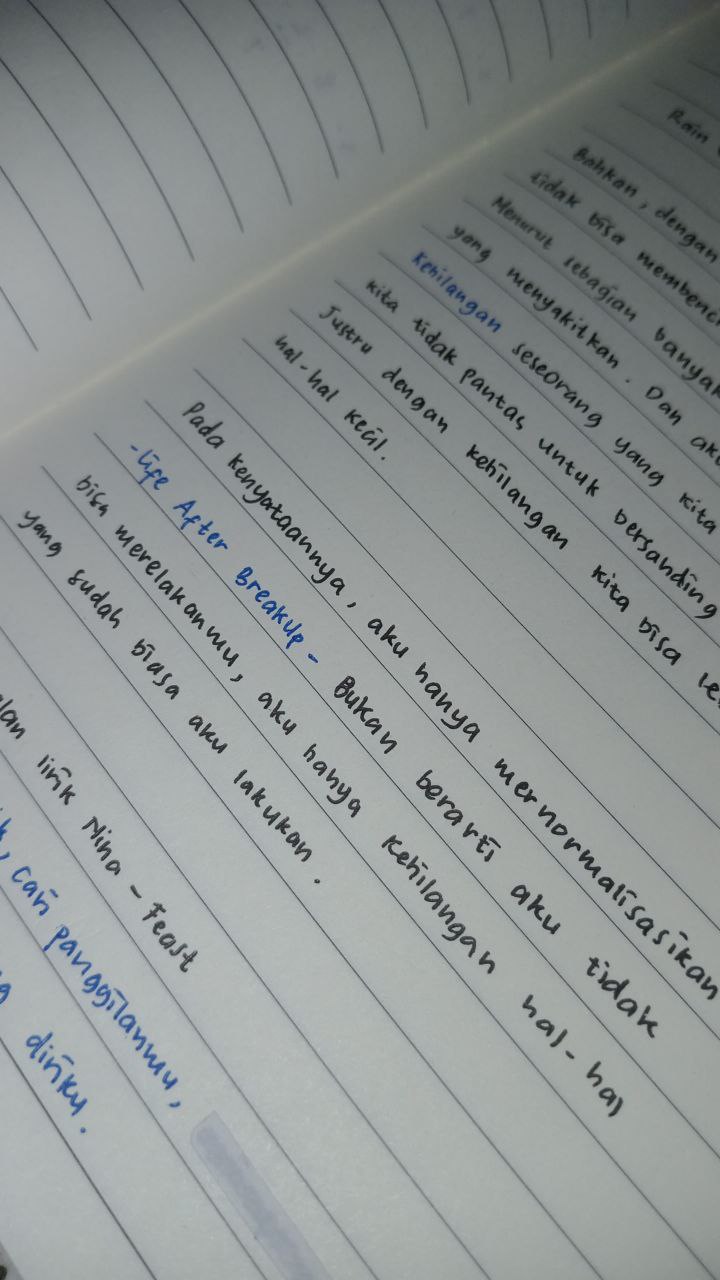 Rain
Bahkan, dengan
tidak bisa membenci
Menurut sebagian banyak
yang menyakitkan. Dan aku
Kehilangan seseorang yang kita
kita tidak pantas untuk bersanding
Justru dengan kehilangan kita bisa
hal-hal kecil.
Pada kenyataannya, aku hanya mernormalisasikan
-Life After Breakup- Bukan berarti aku tidak
bisa merelakanmu, aku hanya kehilangan hal-hal
yang sudah biasa aku lakukan.
lirik Nina - Feast
cari panggilanmu,
diriku.